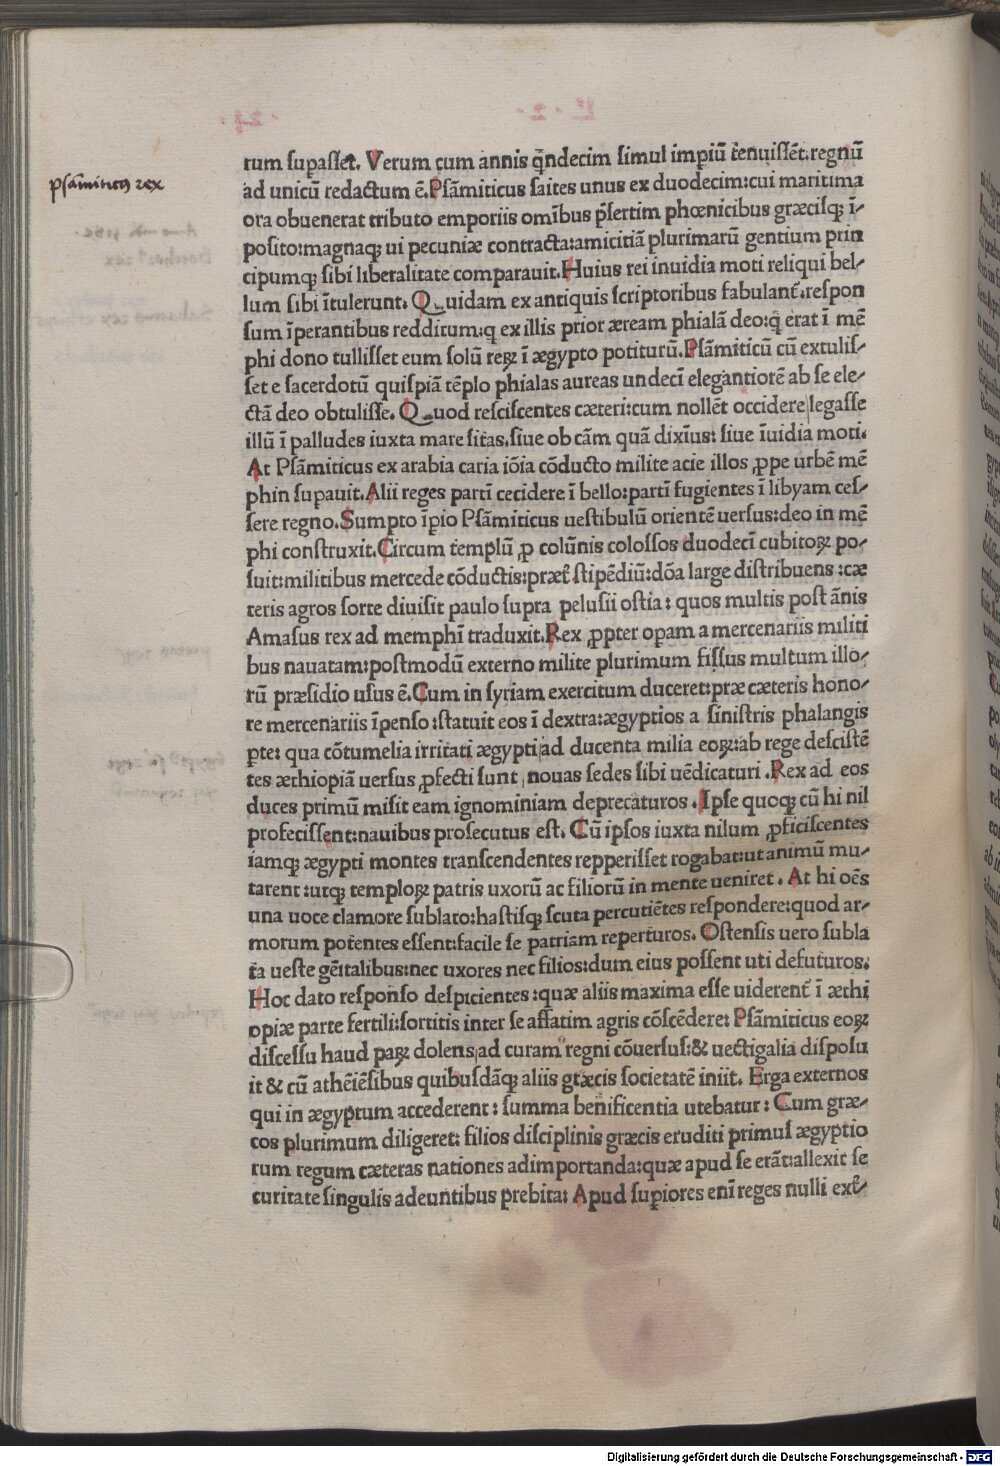 pſāmiticꝰ rex
rum ſuꝑaſſet. Verum cum annis q̄ndecim ſimul impiū tenuiſſēt.regnū
ad unicū redactum ē.Pſāmiticus ſaites unus ex duodecim:cui maritima
ora obuenerat tributo emporiis omībus p̄ſertim phœnicibus græciſqꝫ ī-
poſito:magnaqꝫ ui pecuniæ contracta:amicitiā plurimarū gentium prin
cipumqꝫ ſibi liberalitate comparauit.Huius rei inuidia moti reliqui bel-
lum ſibi ītulerunt. Quidam ex antiquis ſcriptoribus fabulant̄.reſpon
ſum īperantibus redditum:q ex illis prior æream phialā deo:q̄ erat ī mē
phi dono tulliſſet eum ſolū reꝝ ī ægypto potiturū.Pſāmiticū cū extuliſ-
ſet e ſacerdotū quiſpiā tēplo phialas aureas undecī elegantiorē ab ſe ele-
ctā deo obtuliſſe. Quod reſciſcentes cæteri:cum nollēt occidere legaſſe
illū ī palludes iuxta mare ſitas.ſiue ob cām quā dixīus: ſiue īuidia moti.
At Pſāmiticus ex arabia caria iōīa cōducto milite acie illos ꝓpe urbē mē
phin ſuꝑauit.Alii reges partī cecidere ī bello:partī fugientes ī libyam ceſ-
ſere regno.Sumpto īpio Pſāmiticus ueſtibulū orientē uerſus:deo in mē
phi conſtruxit.Circum templū ꝓ colūnis coloſſos duodecī cubitoꝝ po-
ſuit:militibus mercede cōductis:præt̄ ſtipēdiū:dōa large diſtribuens :cæ
teris agros ſorte diuiſit paulo ſupra peluſii oſtia: quos multis poſt ānis
Amaſus rex ad memphī traduxit.Rex ꝓpter opam a mercenariis militi
bus nauatam:poſtmodū externo milite plurimum fiſſus multum illo-
rū præſidio uſus ē.Cum in ſyriam exercitum duceret:præ cæteris hono-
re mercenariis īpenſo:ſtatuit eos ī dextra:ægyptios a ſiniſtris phalangis
ꝑte: qua cōtumelia irritati ægypti ad ducenta milia eoꝝ:ab rege deſciſtē
tes æthiopiā uerſus ꝓfecti ſunt nouas ſedes ſibi uēdicaturi .Rex ad eos
duces primū miſit eam ignominiam deprecaturos .Ipſe quoqꝫ cū hi nil
profeciſſent:nauibus proſecutus eſt. Cū ipſos iuxta nilum ꝓficiſcentes
iamqꝫ ægypti montes tranſcendentes repperiſſet rogabat:ut animū mu-
tarent :utqꝫ temploꝝ patris uxorū ac filiorū in mente ueniret . At hi oēs
una uoce clamore ſublato:haſtiſqꝫ ſcuta percutiētes reſpondere:quod ar-
morum potentes eſſent:facile ſe patriam reperturos. Oſtenſis uero ſubla
ta ueſte gēitalibus:nec uxores nec filios:dum eius poſſent uti defuturos.
Hoc dato reſponſo deſpicientes :quæ aliis maxima eſſe uiderent̄ ī æthi
opiæ parte fertili:ſortitis inter ſe affatim agris cōſcēdere: Pſāmiticus eoꝝ
diſceſſu haud paꝝ dolens ad curam regni cōuerſuſ:& uectigalia diſpoſu
it & cū athēiēſibus quibuſdāqꝫ aliis græcis ſocietatē iniit. Erga externos
qui in ægyptum accederent: ſumma benificentia utebatur: Cum græ-
cos plurimum diligeret: filios diſciplinis græcis eruditi primuſ ægyptio
rum regum cæteras nationes adimportanda:quæ apud ſe erāt:allexit ſe
curitate ſingulis adeuntibus prebita: Apud ſuꝑiores enī reges nulli ext̄-
Digitalisierung gefördert durch die Deutsche Forschungsgemeinschaft - DFG